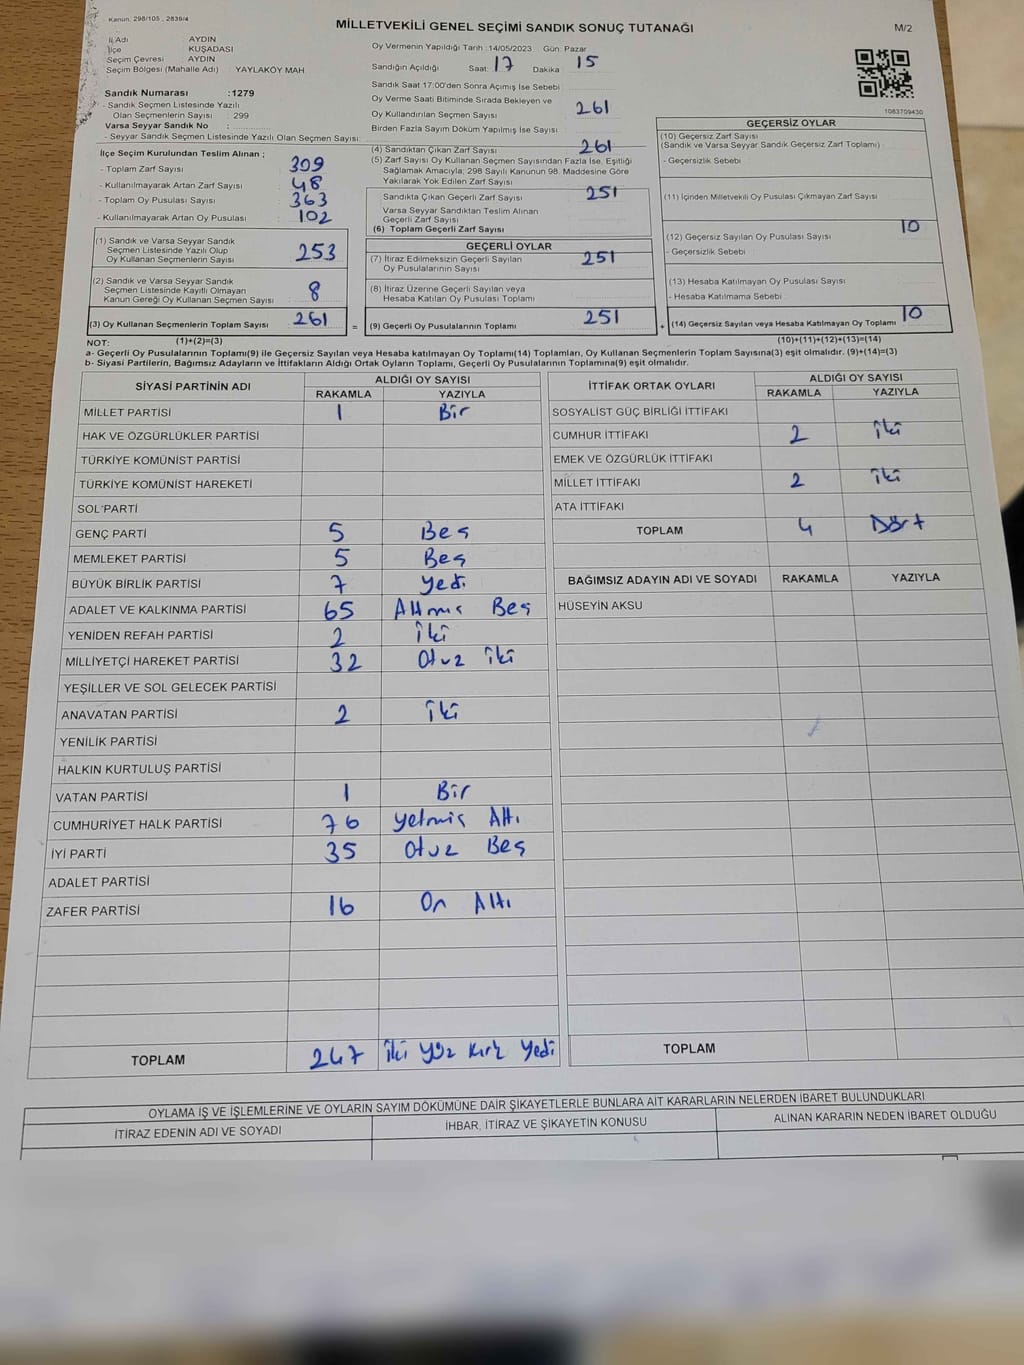 Kanun, 298/105 , 2839/4
MİLLETVEKİLİ GENEL SEÇİMİ SANDIK SONUÇ TUTANAĞI
M/2
İl Adı AYDIN
İlçe KUŞADASI
Seçim Çevresi AYDIN
Seçim Bölgesi (Mahalle Adı) YAYLAKÖY MAH
Sandık Numarası :1279
- Sandık Seçmen Listesinde Yazılı
Olan Seçmenlerin Sayısı : 299
Varsa Seyyar Sandık No :
- Seyyar Sandık Seçmen Listesinde Yazılı Olan Seçmen Sayısı:
Oy Vermenin Yapıldığı Tarih :14/05/2023 Gün: Pazar
Sandığın Açıldığı Saat: 17 Dakika 15
Sandık Saat 17:00'den Sonra Açımış İse Sebebi
Oy Verme Saati Bitiminde Sırada Bekleyen ve
Oy Kullandırılan Seçmen Sayısı 261
Birden Fazla Sayım Döküm Yapılmış İse Sayısı
1083709430
İlçe Seçim Kurulundan Teslim Alınan ;
- Toplam Zarf Sayısı 309
- Kullanılmayarak Artan Zarf Sayısı 48
- Toplam Oy Pusulası Sayısı 363
- Kullanılmayarak Artan Oy Pusulası 102
(1) Sandık ve Varsa Seyyar Sandık
Seçmen Listesinde Yazılı Olup
Oy Kullanan Seçmenlerin Sayısı 253
(2) Sandık ve Varsa Seyyar Sandık
Seçmen Listesinde Kayıtlı Olmayan
Kanun Gereği Oy Kullanan Seçmen Sayısı 8
(3) Oy Kullanan Seçmenlerin Toplam Sayısı 261
(1)+(2)=(3)
(4) Sandıktan Çıkan Zarf Sayısı 261
(5) Zarf Sayısı Oy Kullanan Seçmen Sayısından Fazla İse, Eşitliği
Sağlamak Amacıyla; 298 Sayılı Kanunun 98. Maddesine Göre
Yakılarak Yok Edilen Zarf Sayısı
Sandıkta Çıkan Geçerli Zarf Sayısı 251
Varsa Seyyar Sandıktan Teslim Alınan
Geçerli Zarf Sayısı
(6) Toplam Geçerli Zarf Sayısı
GEÇERLİ OYLAR
(7) İtiraz Edilmeksizin Geçerli Sayılan
Oy Pusulalarının Sayısı 251
(8) İtiraz Üzerine Geçerli Sayılan veya
Hesaba Katılan Oy Pusulası Toplamı
= (9) Geçerli Oy Pusulalarının Toplamı 251
GEÇERSİZ OYLAR
(10) Geçersiz Zarf Sayısı
(Sandık ve Varsa Seyyar Sandık Geçersiz Zarf Toplamı)
- Geçersizlik Sebebi
(11) İçinden Milletvekili Oy Pusulası Çıkmayan Zarf Sayısı
(12) Geçersiz Sayılan Oy Pusulası Sayısı 10
- Geçersizlik Sebebi
(13) Hesaba Katılmayan Oy Pusulası Sayısı
- Hesaba Katılmama Sebebi
+ (14) Geçersiz Sayılan veya Hesaba Katılmayan Oy Toplamı 10
(10)+(11)+(12)+(13)=(14)
NOT:
a- Geçerli Oy Pusulasının Toplamı(9) ile Geçersiz Sayılan veya Hesaba katılmayan Oy Toplamı(14) Toplamları, Oy Kullanan Seçmenlerin Toplam Sayısına(3) eşit olmalıdır. (9)+(14)=(3)
b- Siyasi Partilerin, Bağımsız Adayların ve İttifakların Aldığı Ortak Oyların Toplamı, Geçerli Oy Pusulalarının Toplamına(9) eşit olmalıdır.
SİYASİ PARTİNİN ADI ALDIĞI OY SAYISI
RAKAMLA YAZIYLA
MİLLET PARTİSİ 1 Bir
HAK VE ÖZGÜRLÜKLER PARTİSİ
TÜRKİYE KOMÜNİST PARTİSİ
TÜRKİYE KOMÜNİST HAREKETİ
SOL PARTİ
GENÇ PARTİ 5 Beş
MEMLEKET PARTİSİ 5 Beş
BÜYÜK BİRLİK PARTİSİ 7 Yedi
ADALET VE KALKINMA PARTİSİ 65 Altmış Beş
YENİDEN REFAH PARTİSİ 2 İki
MİLLİYETÇİ HAREKET PARTİSİ 32 Otuz iki
YEŞİLLER VE SOL GELECEK PARTİSİ
ANAVATAN PARTİSİ 2 İki
YENİLİK PARTİSİ
HALKIN KURTULUŞ PARTİSİ
VATAN PARTİSİ 1 Bir
CUMHURİYET HALK PARTİSİ 76 Yetmiş Altı
İYİ PARTİ 35 Otuz Beş
ADALET PARTİSİ
ZAFER PARTİSİ 16 On Altı
TOPLAM 247 İki Yüz Kırk Yedi
İTTİFAK ORTAK OYLARI ALDIĞI OY SAYISI
RAKAMLA YAZIYLA
SOSYALİST GÜÇ BİRLİĞİ İTTİFAKI
CUMHUR İTTİFAKI 2 İki
EMEK VE ÖZGÜRLÜK İTTİFAKI
MİLLET İTTİFAKI 2 İki
ATA İTTİFAKI
TOPLAM 4 Dört
BAĞIMSIZ ADAYIN ADI VE SOYADI RAKAMLA YAZIYLA
HÜSEYİN AKSU
TOPLAM
OYLAMA İŞ VE İŞLEMLERİNE VE OYLARIN SAYIM DÖKÜMÜNE DAİR ŞİKAYETLERLE BUNLARA AİT KARARLARIN NELERDEN İBARET BULUNDUKLARI
İTİRAZ EDENİN ADI VE SOYADI
İHBAR, İTİRAZ VE ŞİKAYETİN KONUSU
ALINAN KARARIN NEDEN İBARET OLDUĞU